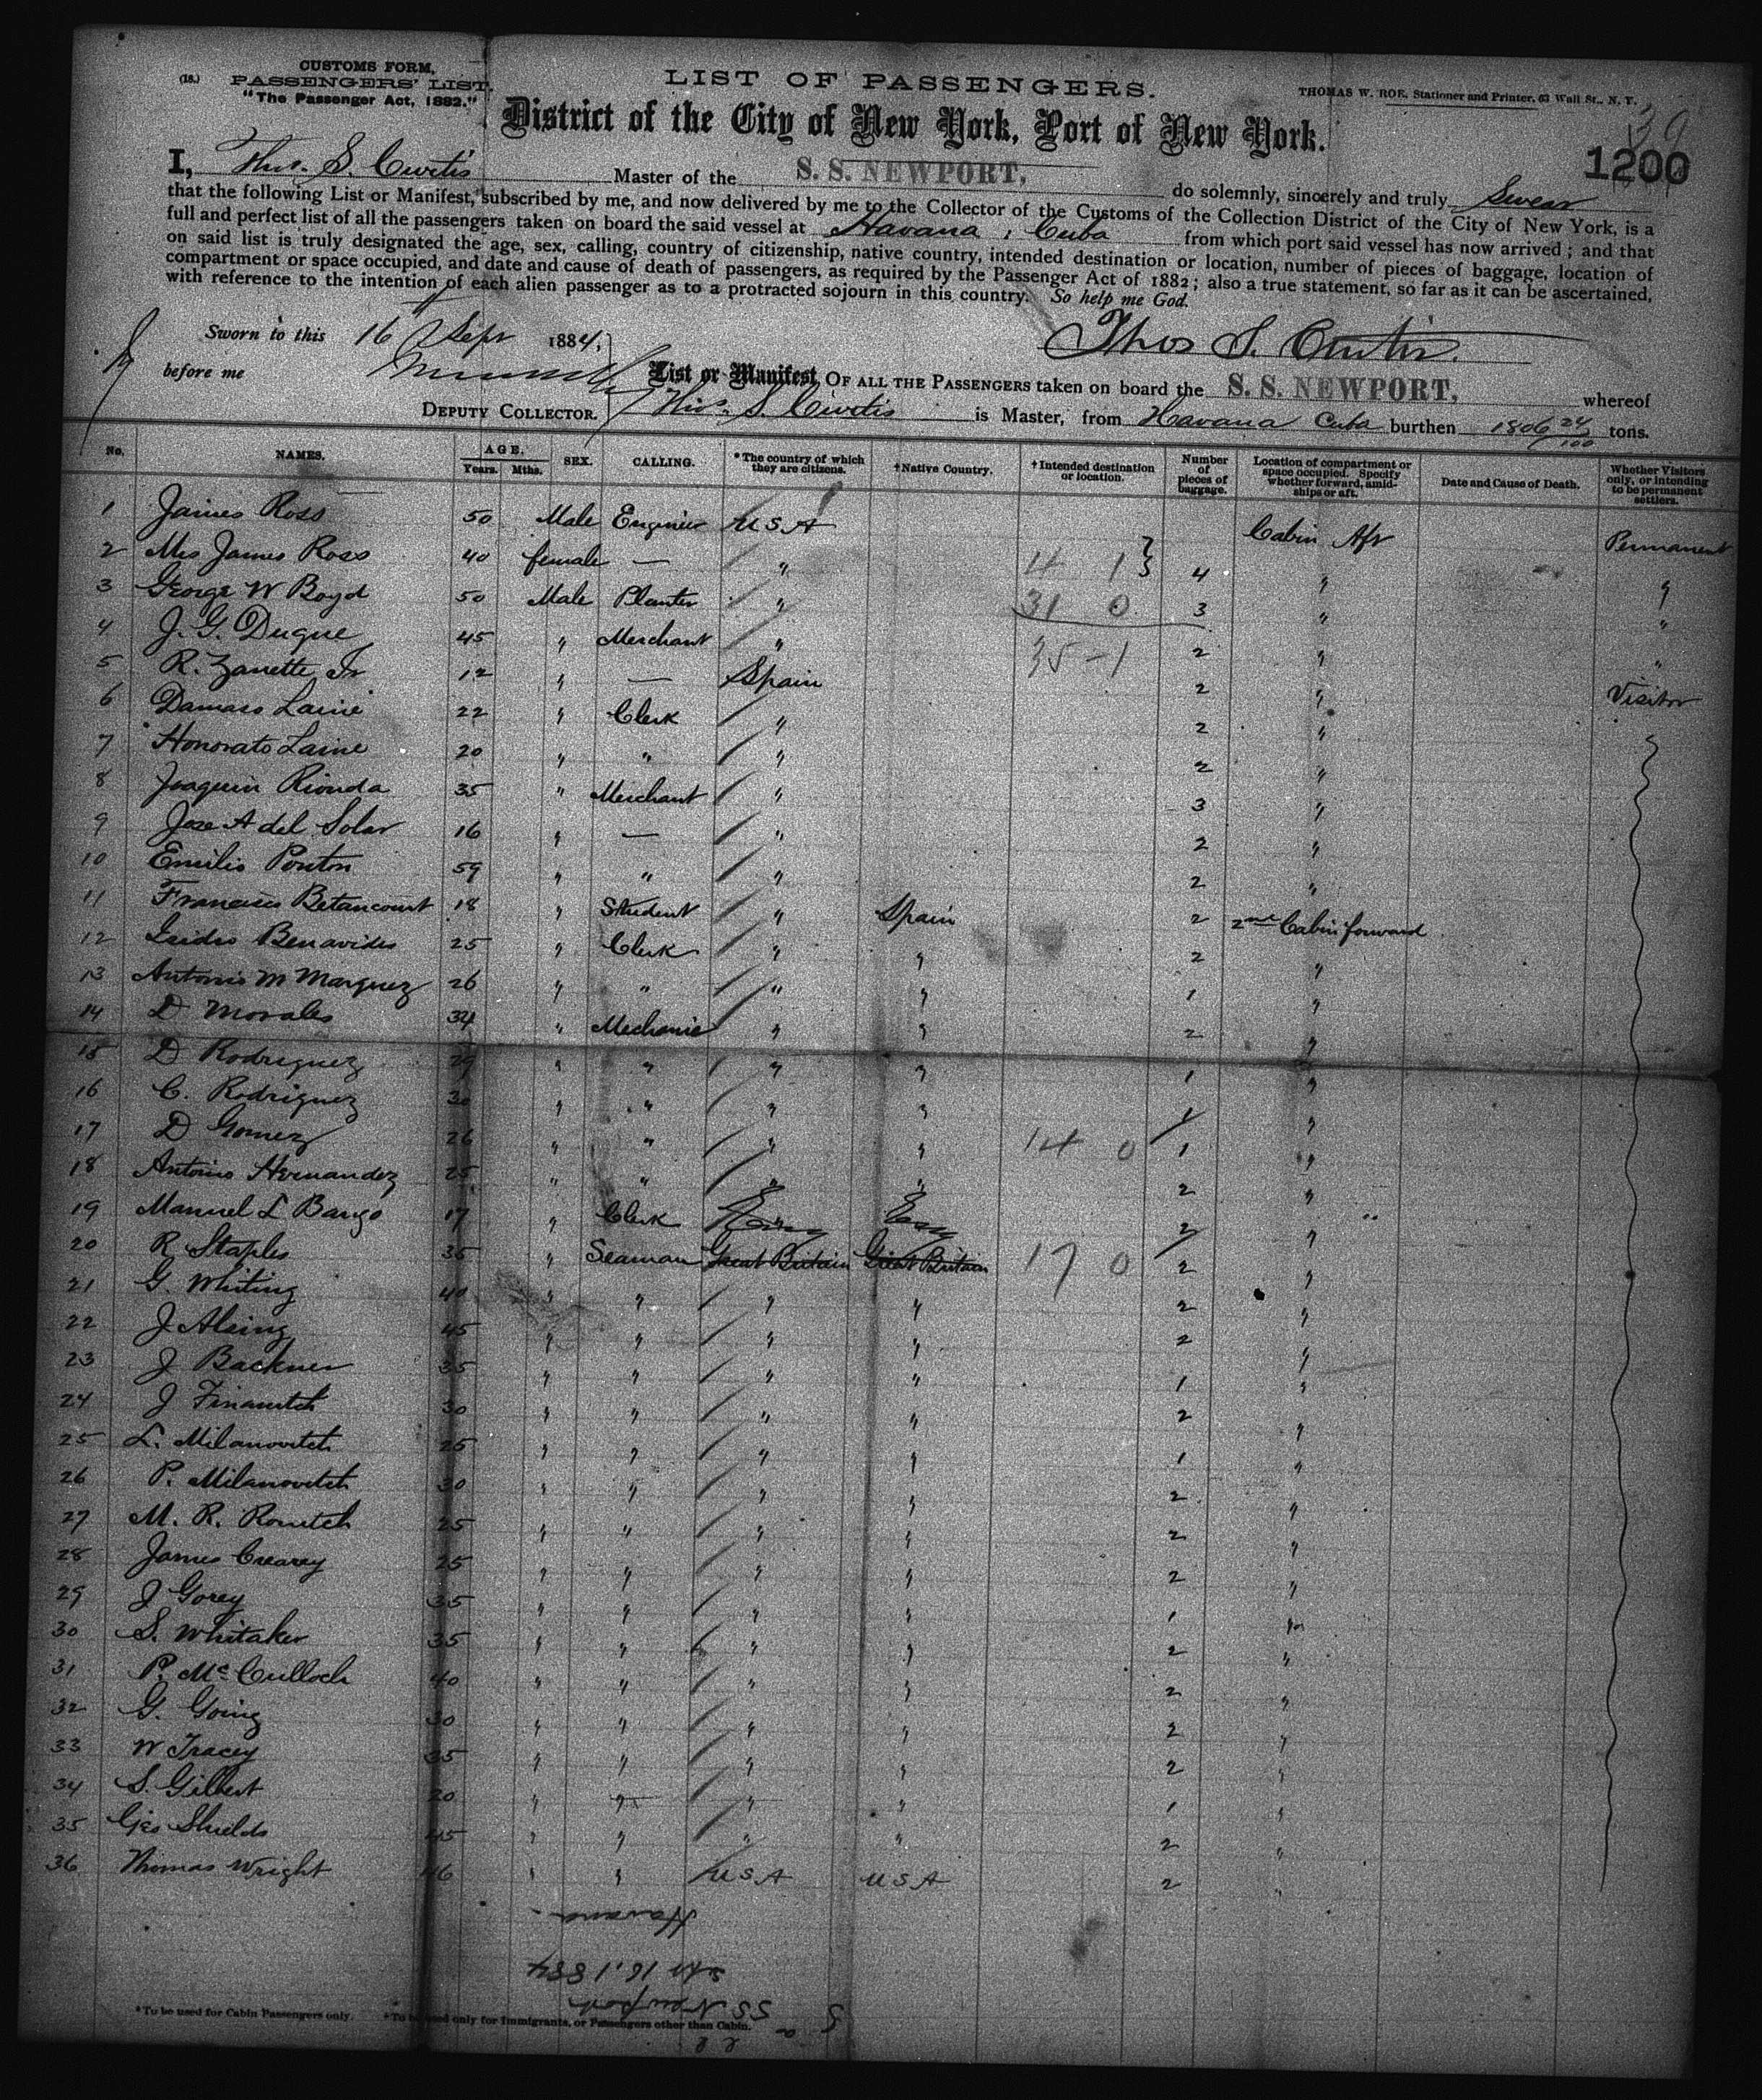 CUSTOMS FORM.
(18.) PASSENGERS' LIST.
"The Passenger Act, 1882."
LIST OF PASSENGERS.
THOMAS W. ROE, Stationer and Printer, 63 Wall St., N. Y.
District of the City of New York, Port of New York.
39
1200
I, Thos. S. Curtis Master of the S. S. NEWPORT, do solemnly, sincerely and truly Swear
that the following List or Manifest, subscribed by me, and now delivered by me to the Collector of the Customs of the Collection District of the City of New York, is a
full and perfect list of all the passengers taken on board the said vessel at Havana, Cuba from which port said vessel has now arrived; and that
on said list is truly designated the age, sex, calling, country of citizenship, native country, intended destination or location, number of pieces of baggage, location of
compartment or space occupied, and date and cause of death of passengers, as required by the Passenger Act of 1882; also a true statement, so far as it can be ascertained,
with reference to the intention of each alien passenger as to a protracted sojourn in this country. So help me God.
Sworn to this 16 Sepr 1884,
Thos S. Curtis.
before me
List or Manifest OF ALL THE PASSENGERS taken on board the S. S. NEWPORT, whereof
DEPUTY COLLECTOR. Thos. S. Curtis is Master, from Havana Cuba burthen 1806 24/100 tons.
No. NAMES. AGE. Years. Mths. SEX. CALLING. *The country of which they are citizens. †Native Country. †Intended destination or location. Number of pieces of baggage. Location of compartment or space occupied. Specify whether forward, amidships or aft. Date and Cause of Death. Whether Visitors only, or intending to be permanent settlers.
1 James Ross 50 Male Engineer U S A Cabin Aft Permanent
2 Mrs James Ross 40 female — " 4 1 } 4 " "
3 George W Boyd 50 Male Planter " 31 0 3 " "
4 J. G. Duque 45 " Merchant " 35 - 1 2 " "
5 R. Zanette Jr 12 " — Spain 2 " Visitor
6 Damaso Laine 22 " Clerk " 2 "
7 Honorato Laine 20 " " " 2 "
8 Joaquin Rionda 35 " Merchant " 3 "
9 Jose A del Solar 16 " — " 2 "
10 Emilio Ponton 59 " " " 2 "
11 Francisco Betancourt 18 " Student " Spain 2 2nd Cabin forward
12 Isidro Benavides 25 " Clerk " " 2 "
13 Antonio M Marquez 26 " " " " 1 "
14 D Morales 34 " Mechanic " " 2 "
15 D Rodriguez 29 " " " " 1 "
16 C. Rodriguez 30 " " " " 1 "
17 D Gomez 26 " " " " 14 0 1 "
18 Antonio Hernandez 25 " " " " 2 "
19 Manuel L Bango 17 " Clerk 2 "
20 R Staples 35 " Seaman Great Britain Great Britain 17 0 2 "
21 G. Whiting 40 " " " " 2 "
22 J Alsing 45 " " " " 2 "
23 J Backner 35 " " " " 1 "
24 J Finamitch 30 " " " " 2 "
25 L. Milanovitch 25 " " " " 1 "
26 P. Milanovitch 30 " " " " 2 "
27 M. R. Romitch 25 " " " " 2 "
28 James Crearey 25 " " " " 2 "
29 J Gorey 35 " " " " 1 "
30 S. Whitaker 35 " " " " 2 "
31 P. McCulloch 40 " " " " 2 "
32 G. Going 30 " " " " 2 "
33 W Tracey 35 " " " " 2 "
34 S. Gilbert 20 " " " " 1 "
35 Geo Shields 45 " " " " 2 "
36 Thomas Wright 46 " " U S A U S A 2 "
Havana
16, 1884
SS Newport
*To be used for Cabin Passengers only. †To be used only for Immigrants, or Passengers other than Cabin.